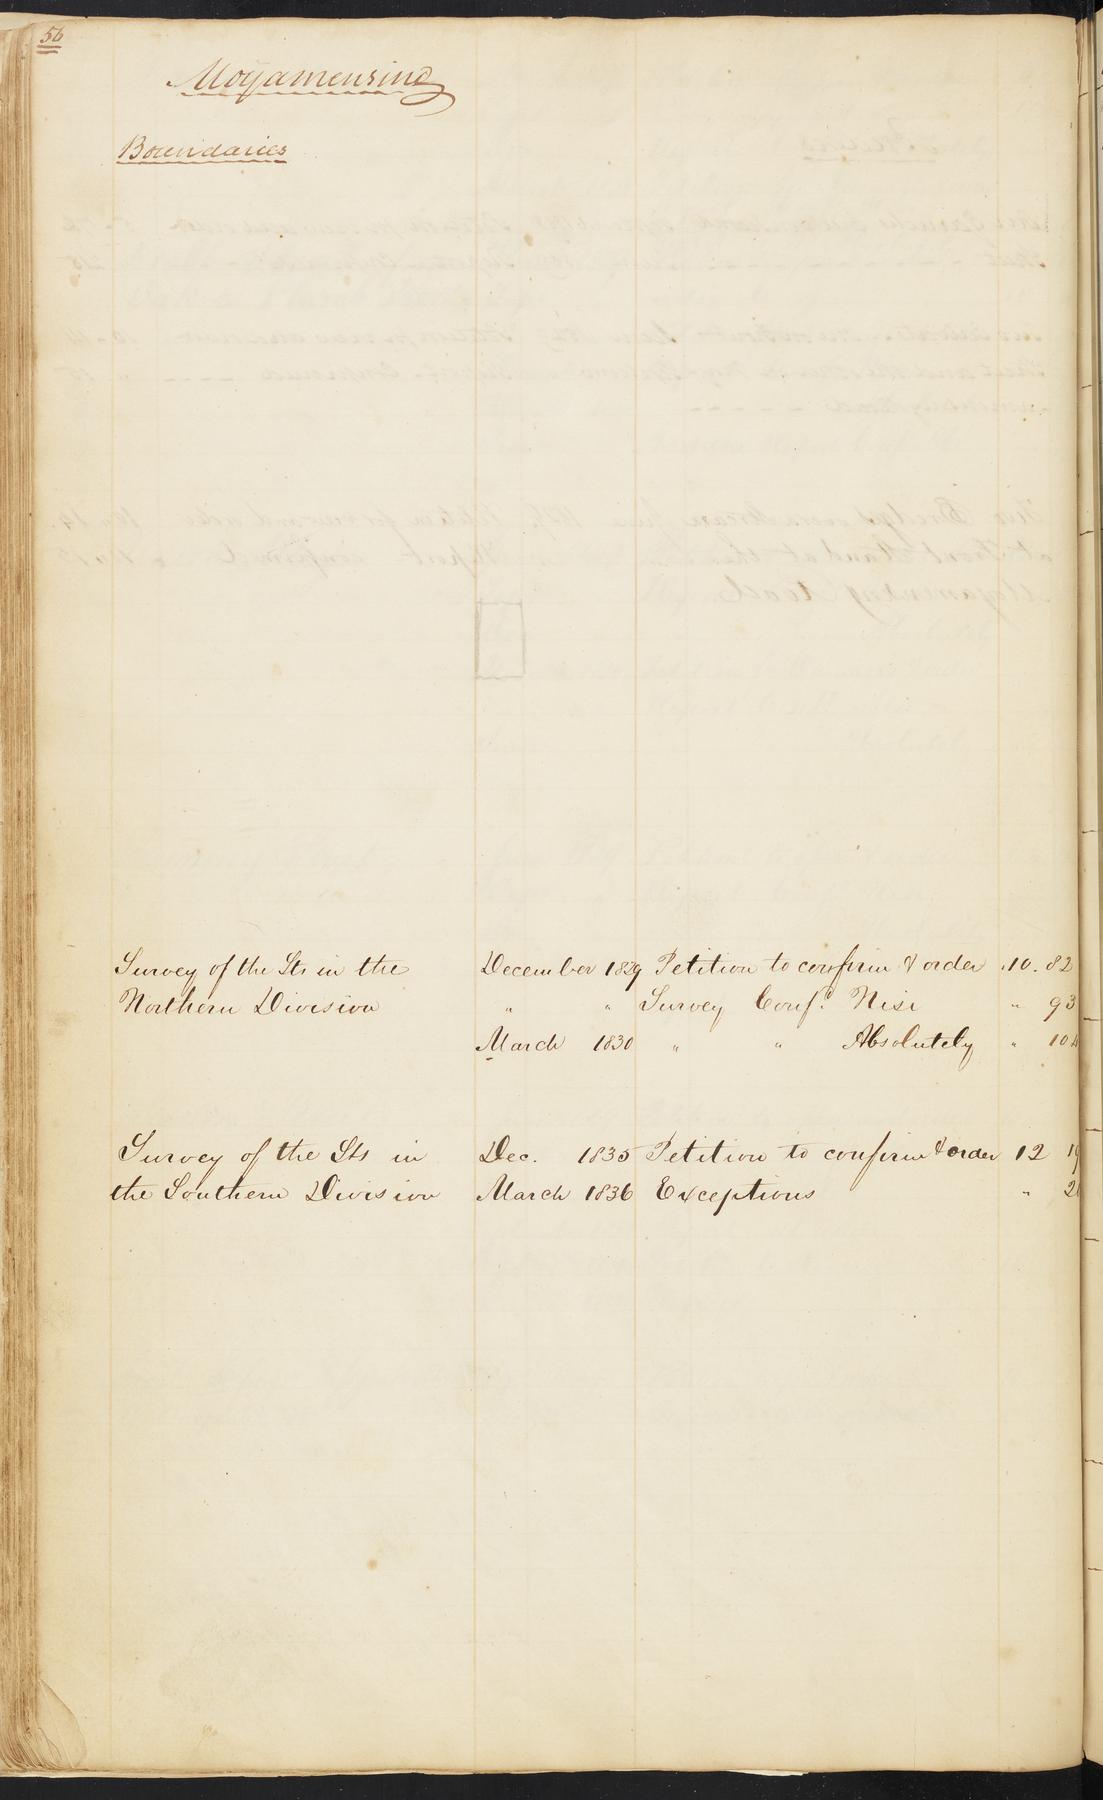 56
Moyamensing
Boundaries
Survey of the Sts in the December 1829 Petition to confirm & order 10. 82
Northern Division " " Survey Conf.d Nisi " 93
March 1830 " " Absolutely "
Survey of the Sts in Dec. 1835 Petition to confirm & order 12
the Southern Division March 1836 Exceptions "